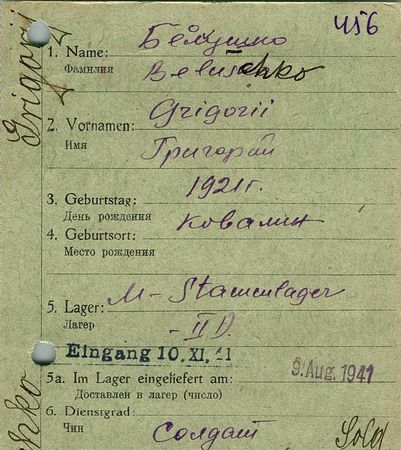 456
1. Name: Белушко
Фамилия Beluschko
Grigorii
2. Vornamen: Grigorii
Имя Григорий
3. Geburtstag: 1921 г.
День рождения
4. Geburtsort: Ковалин
Место рождения
5. Lager: M-Stammlager
Лагер - II D.
Eingang 10. XI. 41
9. Aug. 1941
5a. Im Lager eingeliefert am:
Доставлен в лагер (число)
6. Dienstgrad:
Чин Солдат Sold